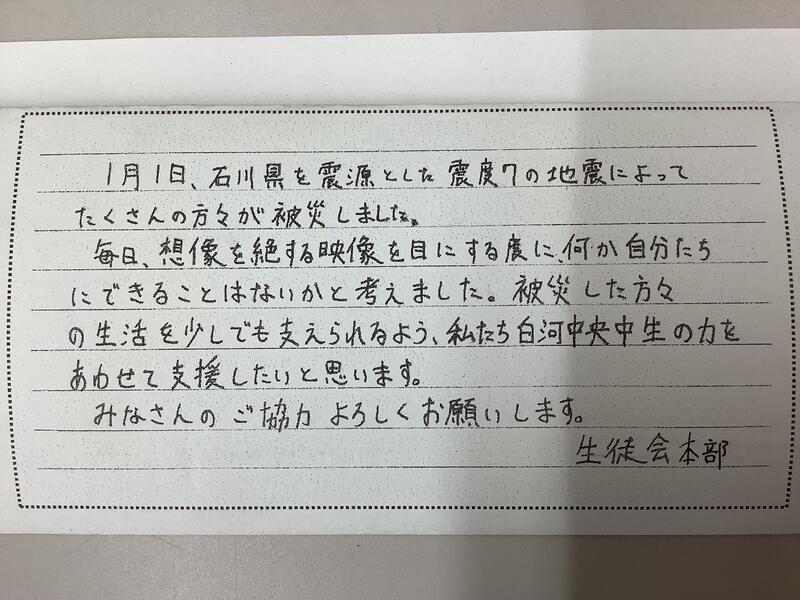 1月1日、石川県を震源とした震度7の地震によって
たくさんの方々が被災しました。
毎日、想像を絶する映像を目にする度に、何か自分たち
にできることはないかと考えました。被災した方々
の生活を少しでも支えられるよう、私たち白河中央中生の力を
あわせて支援したいと思います。
みなさんのご協力よろしくお願いします。
生徒会本部